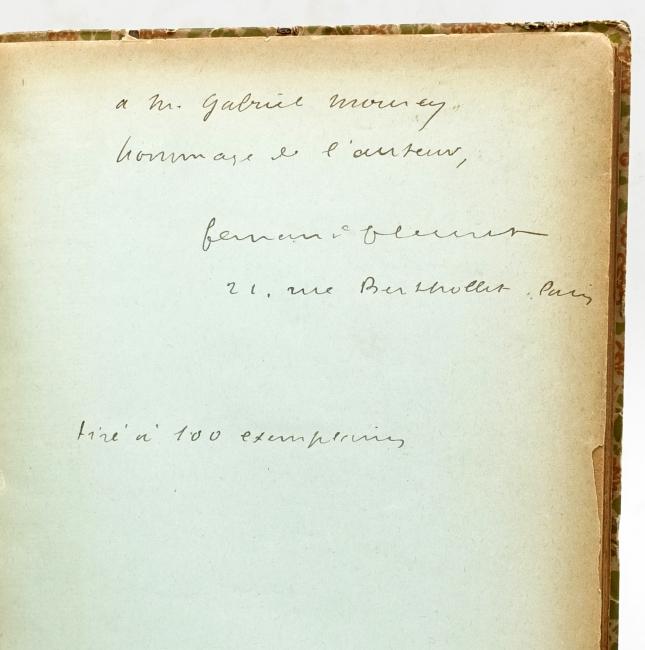 a M. Gabriel Mourey
hommage de l'auteur,
fernand fleuret
21, rue Berthollet Paris
tiré à 100 exemplaires